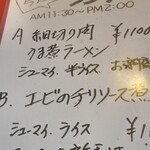 AM11:30〜PM2:00
A 細切り肉 ¥1100
うま煮ラーメン
シューマイ、半ライス
B. エビのチリソース煮
シューマイ、ライス